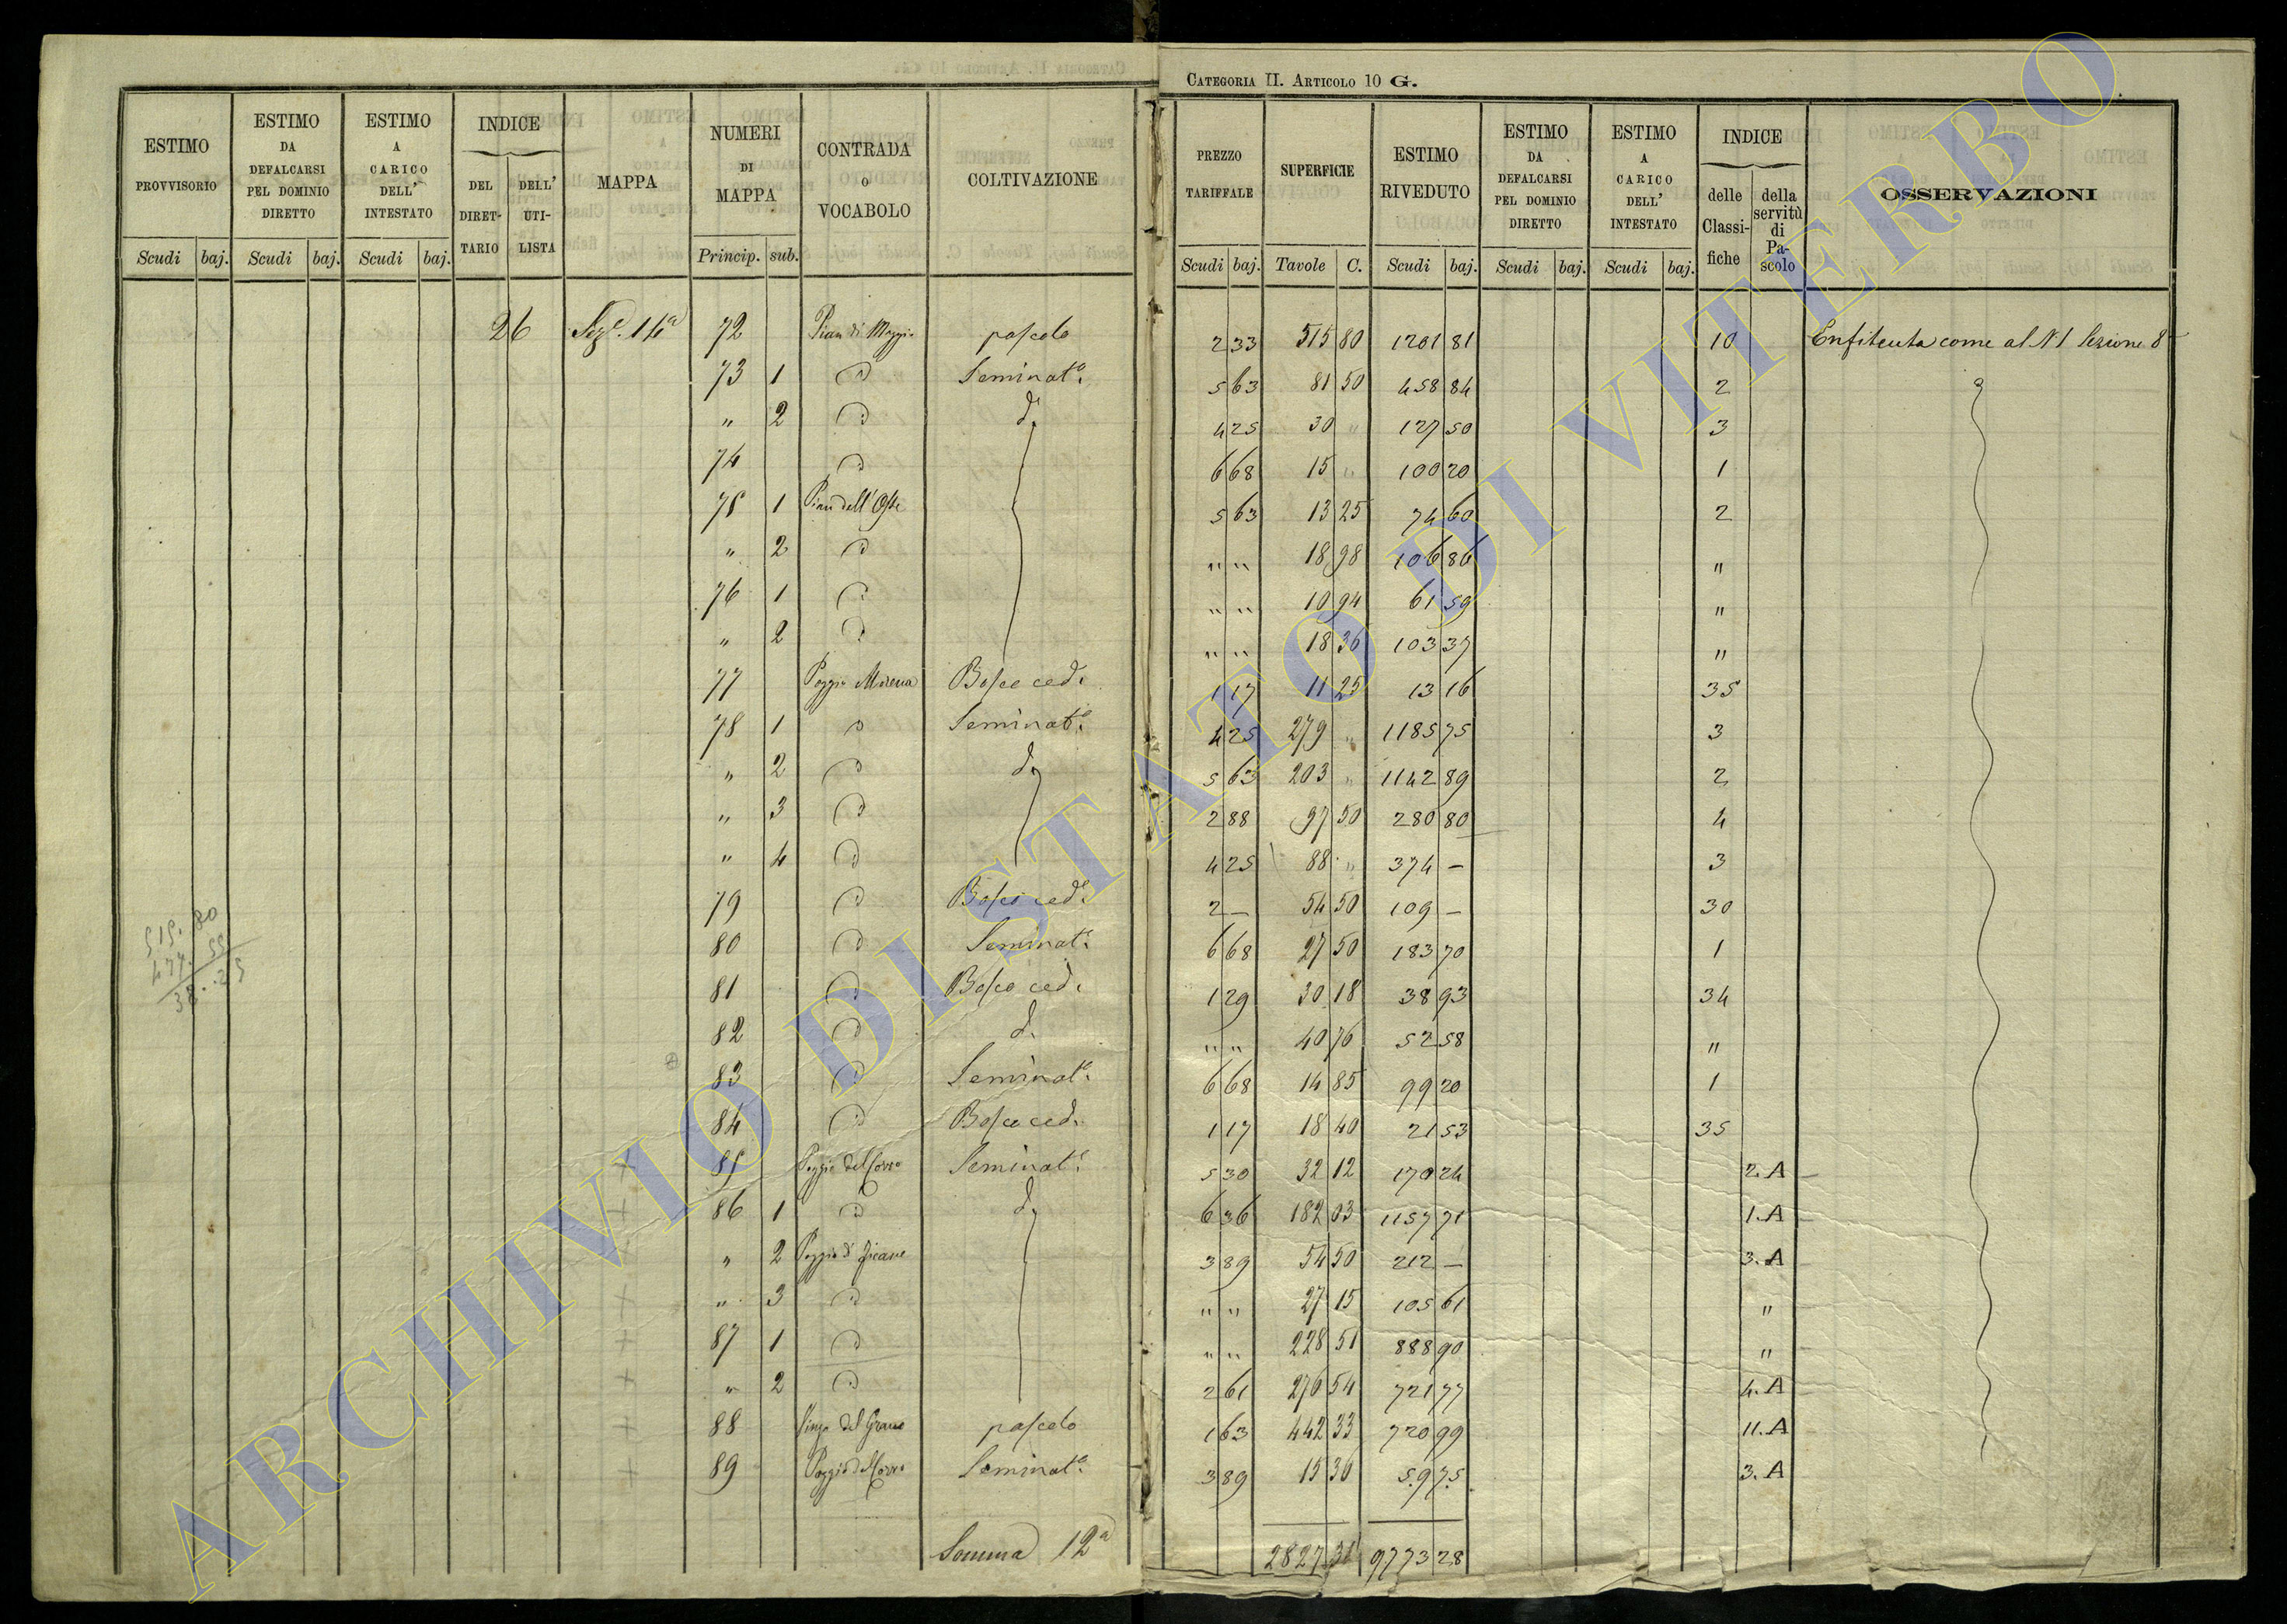 CATEGORIA II. ARTICOLO 10 G.
ESTIMO PROVVISORIO | ESTIMO DA DEFALCARSI PEL DOMINIO DIRETTO | ESTIMO A CARICO DELL' INTESTATO | INDICE DEL DIRETTARIO | DELL' UTILISTA | MAPPA | NUMERI DI MAPPA | CONTRADA O VOCABOLO | COLTIVAZIONE | PREZZO TARIFFALE | SUPERFICIE | ESTIMO RIVEDUTO | ESTIMO DA DEFALCARSI PEL DOMINIO DIRETTO | ESTIMO A CARICO DELL' INTESTATO | INDICE delle Classifiche | della servitù di Pascolo | OSSERVAZIONI
Scudi baj. | Scudi baj. | Scudi baj. | Princip. sub. | Scudi baj. | Tavole C. | Scudi baj. | Scudi baj. | Scudi baj.
26 Sez.e 14a 72 Pian di Maggio pascolo 2 33 515 80 1201 81 10 Enfiteuta come al N 1 Sezione 8
73 1 D Seminat.o 5 63 81 50 458 84 2
" 2 D d.o 4 25 30 " 127 50 3
74 D 6 68 15 " 100 20 1
75 1 Pian dell' Oste 5 63 13 25 74 60 2
" 2 D " " 18 98 106 86 "
76 1 D " " 10 94 61 59 "
" 2 D " " 18 36 103 37 "
77 Poggio Morena Bosco ced. 1 17 11 25 13 16 35
78 1 D Seminat.o 4 25 279 " 1185 75 3
" 2 D d.o 5 63 203 " 1142 89 2
" 3 D 2 88 97 50 280 80 4
" 4 D 4 25 88 " 374 — 3
79 D Bosco ced. 2 — 54 50 109 — 30
80 D Seminat.o 6 68 27 50 183 70 1
81 D Bosco ced. 1 29 30 18 38 93 34
82 D d. " " 40 76 52 58 "
83 D Seminat.o 6 68 14 85 99 20 1
84 D Bosco ced. 1 17 18 40 21 53 35
+ 85 Poggio del Corvo Seminat.o 5 30 32 12 170 24 2.A
+ 86 1 D d.o 6 36 182 03 1157 71 1.A
+ " 2 Poggio di 3 89 54 50 212 — 3.A
+ " 3 D " " 27 15 105 61 "
+ 87 1 D " " 228 51 888 90 "
+ " 2 D 2 61 276 54 721 77 4.A
+ 88 del Grano pascolo 1 63 442 33 720 99 11.A
+ 89 Poggio del Corvo Seminat.o 3 89 15 36 59 75 3.A
515. 80
477. 55
38. 25
Somma 12a 2827 31 9773 28
ARCHIVIO DI STATO DI VITERBO